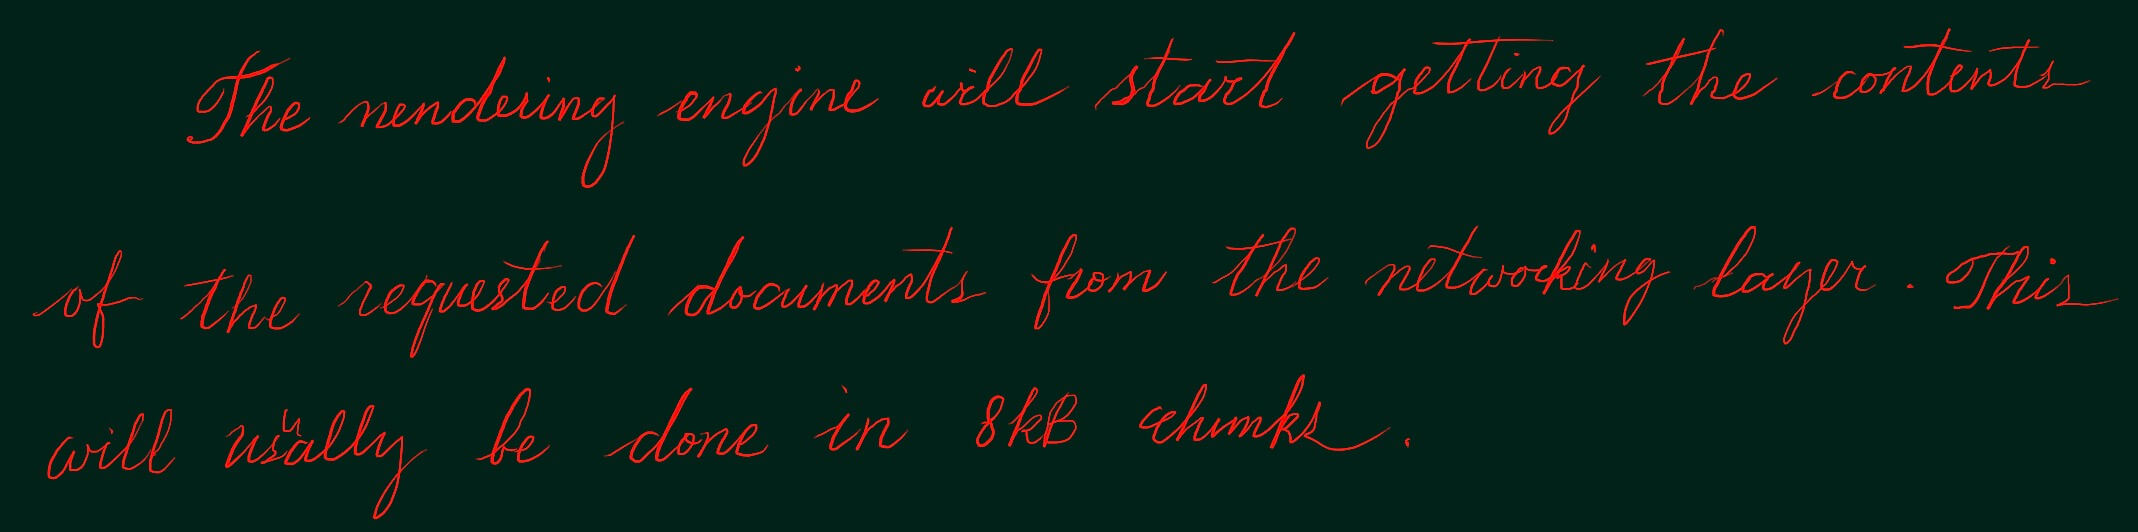 The rendering engine will start getting the contents
of the requested documents from the networking layer. This
will usually be done in 8kB chunks.